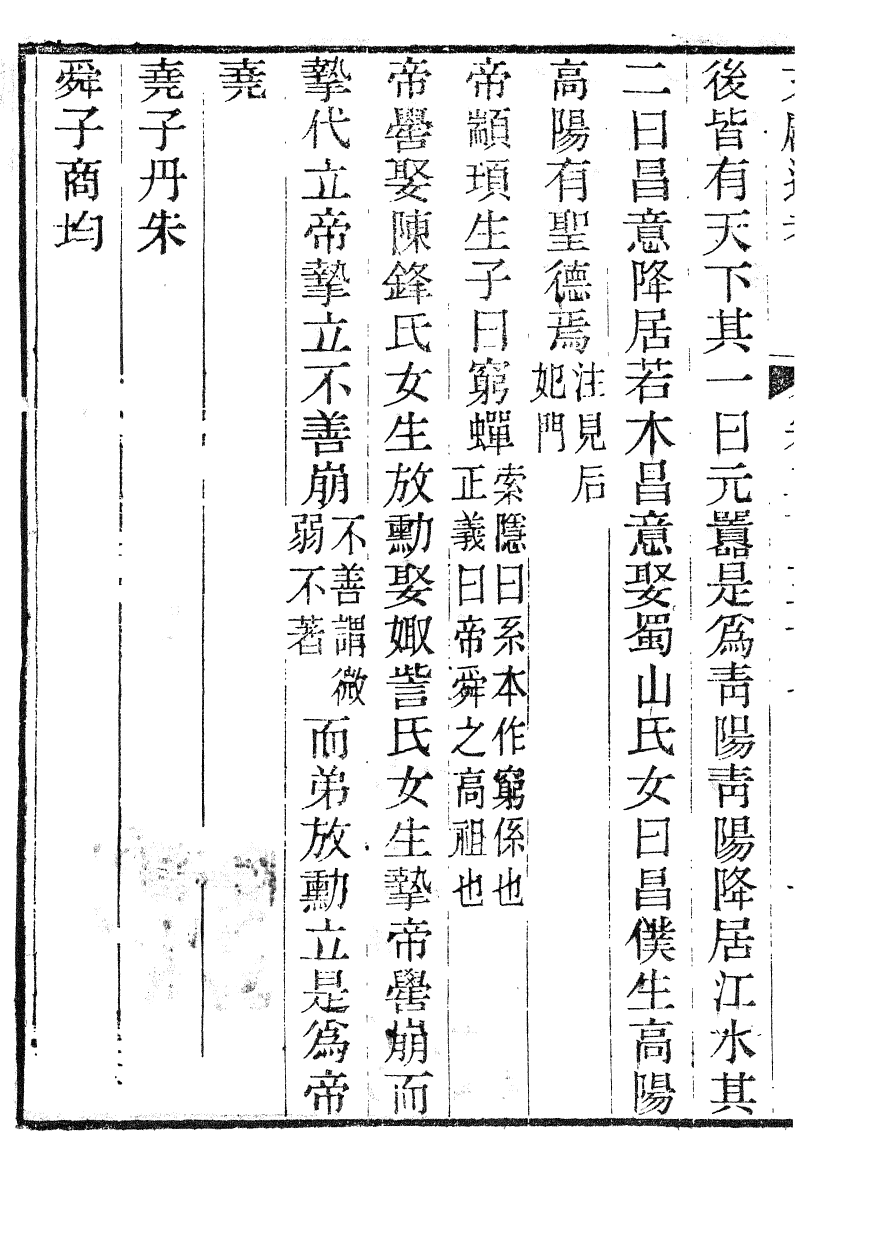 後皆有天下其一曰元囂是爲靑陽靑陽降居江水其
二曰昌意降居若木昌意娶蜀山氏女曰昌僕生高陽
高陽有聖德焉注見后妃門
帝顓頊生子曰窮蟬索隱曰系本作窮係也正義曰帝舜之高祖也
帝嚳娶陳鋒氏女生放勳娶娵訾氏女生摯帝嚳崩而
摯代立帝摯立不善崩不善謂微弱不著而弟放勳立是爲帝
堯
堯子丹朱
舜子商均